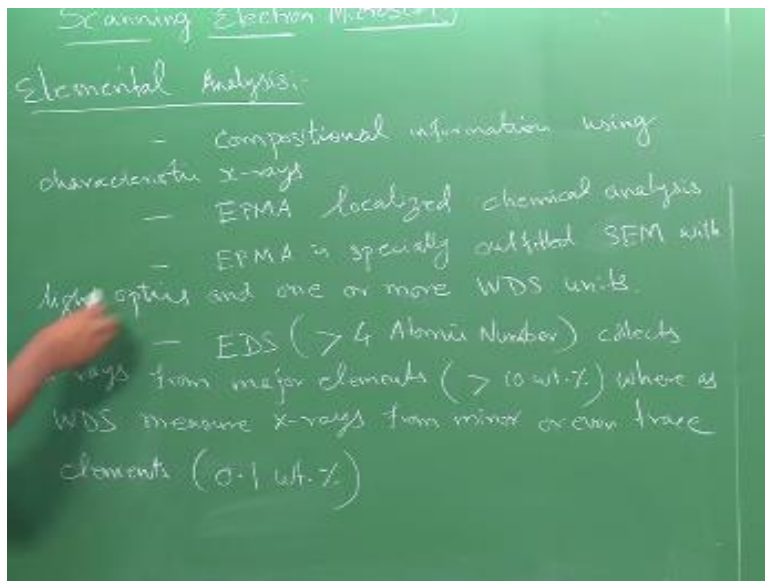 Scanning Electron Microscopy
Elemental Analysis:-
- Compositional information using
characteristic x-rays
- EPMA localized chemical analysis
- EPMA is specially outfitted SEM with
light optics and one or more WDS units.
- EDS (> 4 Atomic Number) collects
x-rays from major elements (> 10 wt.%) where as
WDS measure x-rays from minor or even trace
elements (0.1 wt.%)